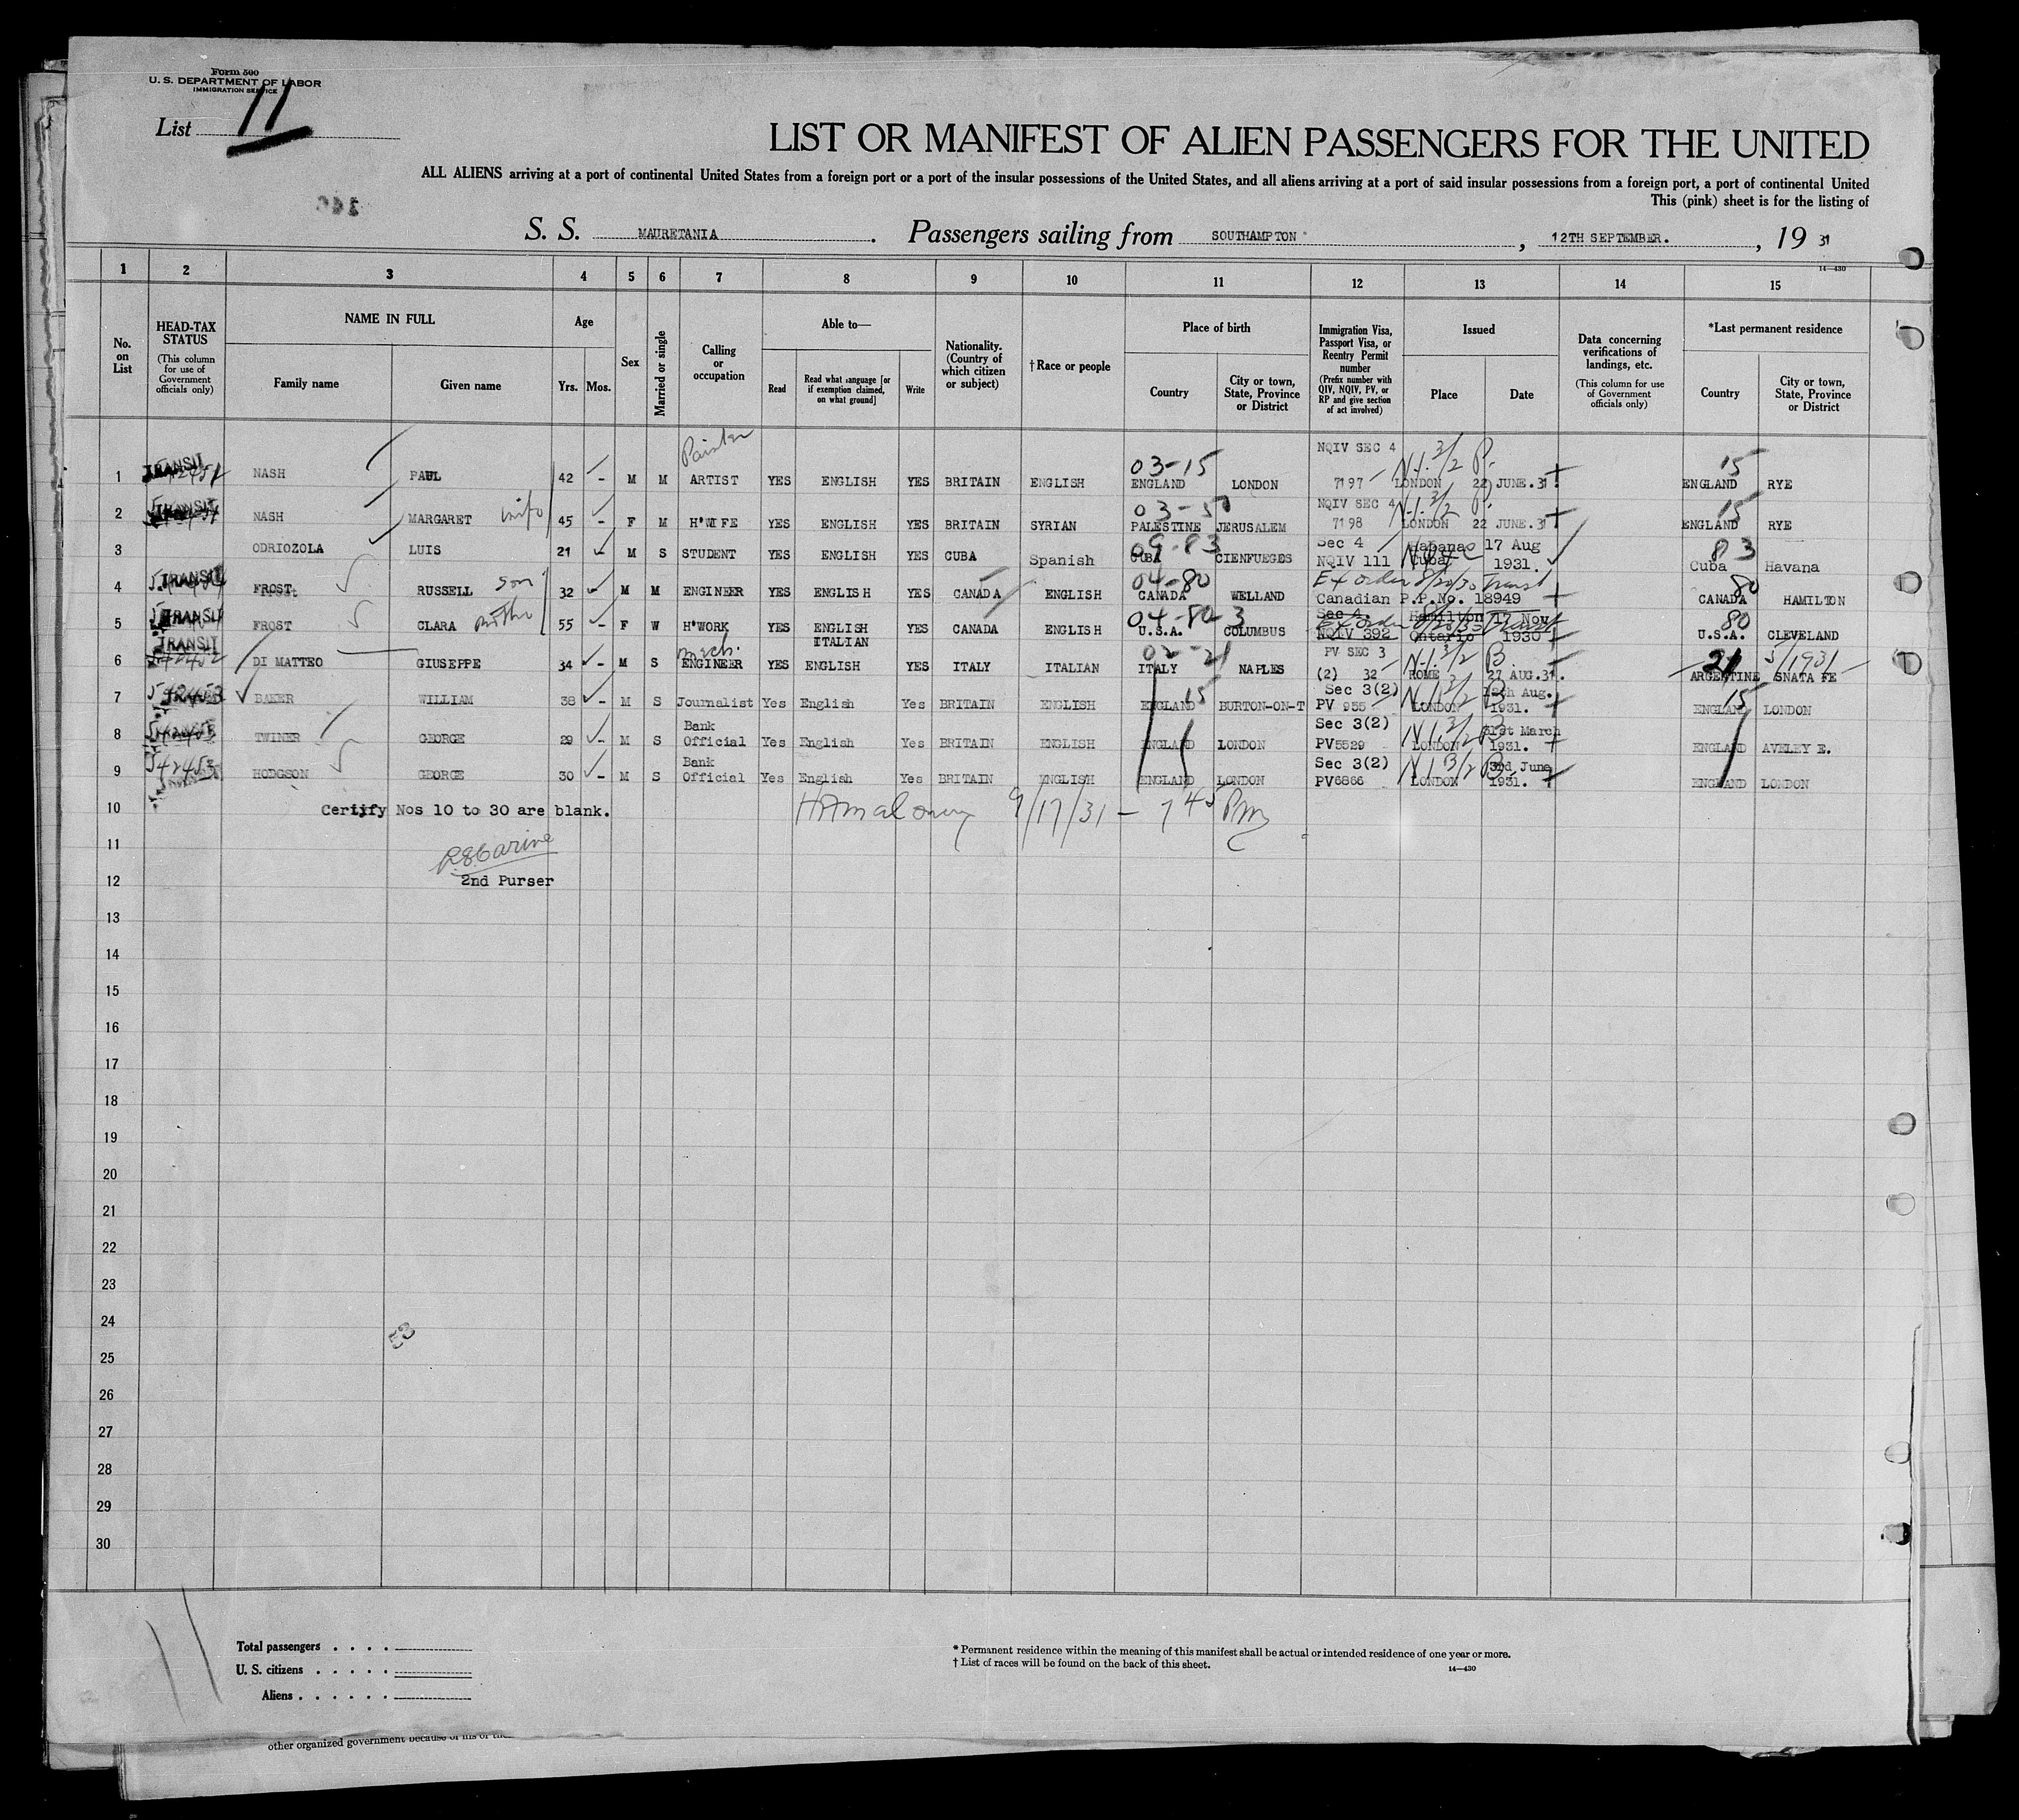 Form 500
U. S. DEPARTMENT OF LABOR
IMMIGRATION SERVICE
List 11
LIST OR MANIFEST OF ALIEN PASSENGERS FOR THE UNITED
ALL ALIENS arriving at a port of continental United States from a foreign port or a port of the insular possessions of the United States, and all aliens arriving at a port of said insular possessions from a foreign port, a port of continental United
This (pink) sheet is for the listing of
S. S. MAURETANIA. Passengers sailing from SOUTHAMPTON, 12TH SEPTEMBER., 19 31
14—430
1 2 3 4 5 6 7 8 9 10 11 12 13 14 15
No. on List
HEAD-TAX STATUS (This column for use of Government officials only)
NAME IN FULL
Family name Given name
Age
Yrs. Mos.
Sex
Married or single
Calling or occupation
Able to—
Read Read what language [or if exemption claimed, on what ground] Write
Nationality. (Country of which citizen or subject)
†Race or people
Place of birth
Country City or town, State, Province or District
Immigration Visa, Passport Visa, or Reentry Permit number (Prefix number with QIV, NQIV, PV, or RP and give section of act involved)
Issued
Place Date
Data concerning verifications of landings, etc. (This column for use of Government officials only)
*Last permanent residence
Country City or town, State, Province or District
Painter NQIV SEC 4
03-15 15
1 TRANSIT NASH PAUL 42 - M M ARTIST YES ENGLISH YES BRITAIN ENGLISH ENGLAND LONDON 7197 LONDON 22 JUNE.31. ENGLAND RYE
NQIV SEC 4
03-50 15
2 TRANSIT NASH MARGARET wife 45 - F M H'WIFE YES ENGLISH YES BRITAIN SYRIAN PALESTINE JERUSALEM 7198 LONDON 22 JUNE.31 ENGLAND RYE
09-83 Sec 4 Habana 17 Aug 83
3 ODRIOZOLA LUIS 21 - M S STUDENT YES ENGLISH YES CUBA Spanish CUBA CIENFUEGES NQIV 111 Cuba 1931. Cuba Havana
04-80 Ex order 8/20/30 Transit 80
4 TRANSIT FROST RUSSELL son 32 M M ENGINEER YES ENGLISH YES CANADA ENGLISH CANADA WELLAND Canadian P.P.No. 18949 CANADA HAMILTON
04-80 Sec 4. Hamilton 17 Nov 80
5 TRANSIT FROST CLARA mother 55 F W H'WORK YES ENGLISH YES CANADA ENGLISH U.S.A. COLUMBUS NQIV 392 Ontario 1930 U.S.A. CLEVELAND
mech. ITALIAN PV SEC 3
6 TRANSIT DI MATTEO GIUSEPPE 34 - M S ENGINEER YES ENGLISH YES ITALY ITALIAN ITALY NAPLES (2) 32 ROME 27 AUG.31. 21 ARGENTINE SNATA FE
Sec 3(2) 12th Aug.
7 BAKER WILLIAM 38 - M S Journalist Yes English Yes BRITAIN ENGLISH ENGLAND 15 BURTON-ON-T PV 955 LONDON 1931. 15 ENGLAND LONDON
Bank Sec 3(2) 31st March
8 TWINER GEORGE 29 - M S Official Yes English Yes BRITAIN ENGLISH ENGLAND LONDON PV5529 LONDON 1931. ENGLAND AVELEY E.
Bank Sec 3(2) 3rd June
9 HODGSON GEORGE 30 - M S Official Yes English Yes BRITAIN ENGLISH ENGLAND LONDON PV6866 LONDON 1931. ENGLAND LONDON
10 Certify Nos 10 to 30 are blank. 9/17/31 — 7 45 Pm
11
12 2nd Purser
13
14
15
16
17
18
19
20
21
22
23
24 53
25
26
27
28
29
30
Total passengers
U. S. citizens
Aliens
* Permanent residence within the meaning of this manifest shall be actual or intended residence of one year or more.
† List of races will be found on the back of this sheet.
14—430
other organized government because of his or